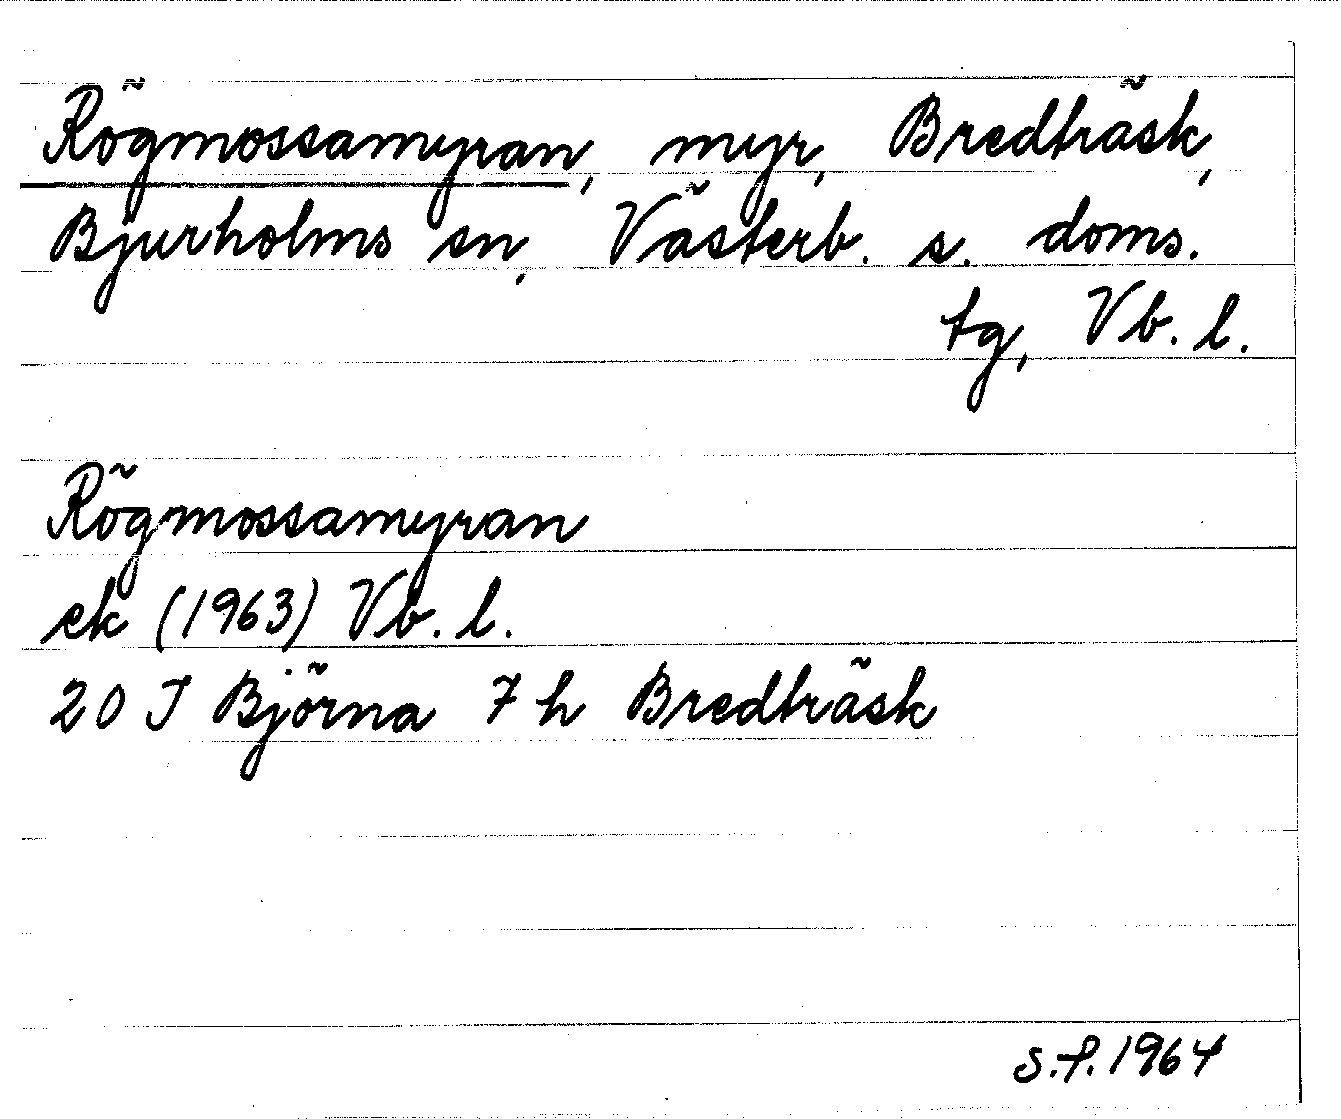 Rögmossamyran, myr, Bredträsk,
Bjurholms sn, Västerb. s. doms.
tg, Vb. l.
Rögmossamyran
ek (1963) Vb. l.
20 J Björna 7 h Bredträsk
S.f. 1964